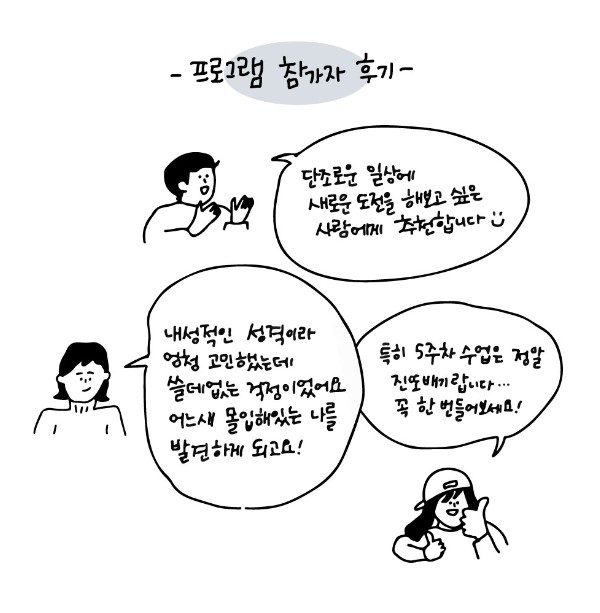 - 프로그램 참가자 후기 -
단조로운 일상에
새로운 도전을 해보고 싶은
사람에게 추천합니다
내성적인 성격이라
엄청 고민했는데
쓸데없는 걱정이었어요
어느새 몰입해있는 나를
발견하게 되고요!
특히 5주차 수업은 정말
진또배기랍니다...
꼭 한 번 들어보세요!